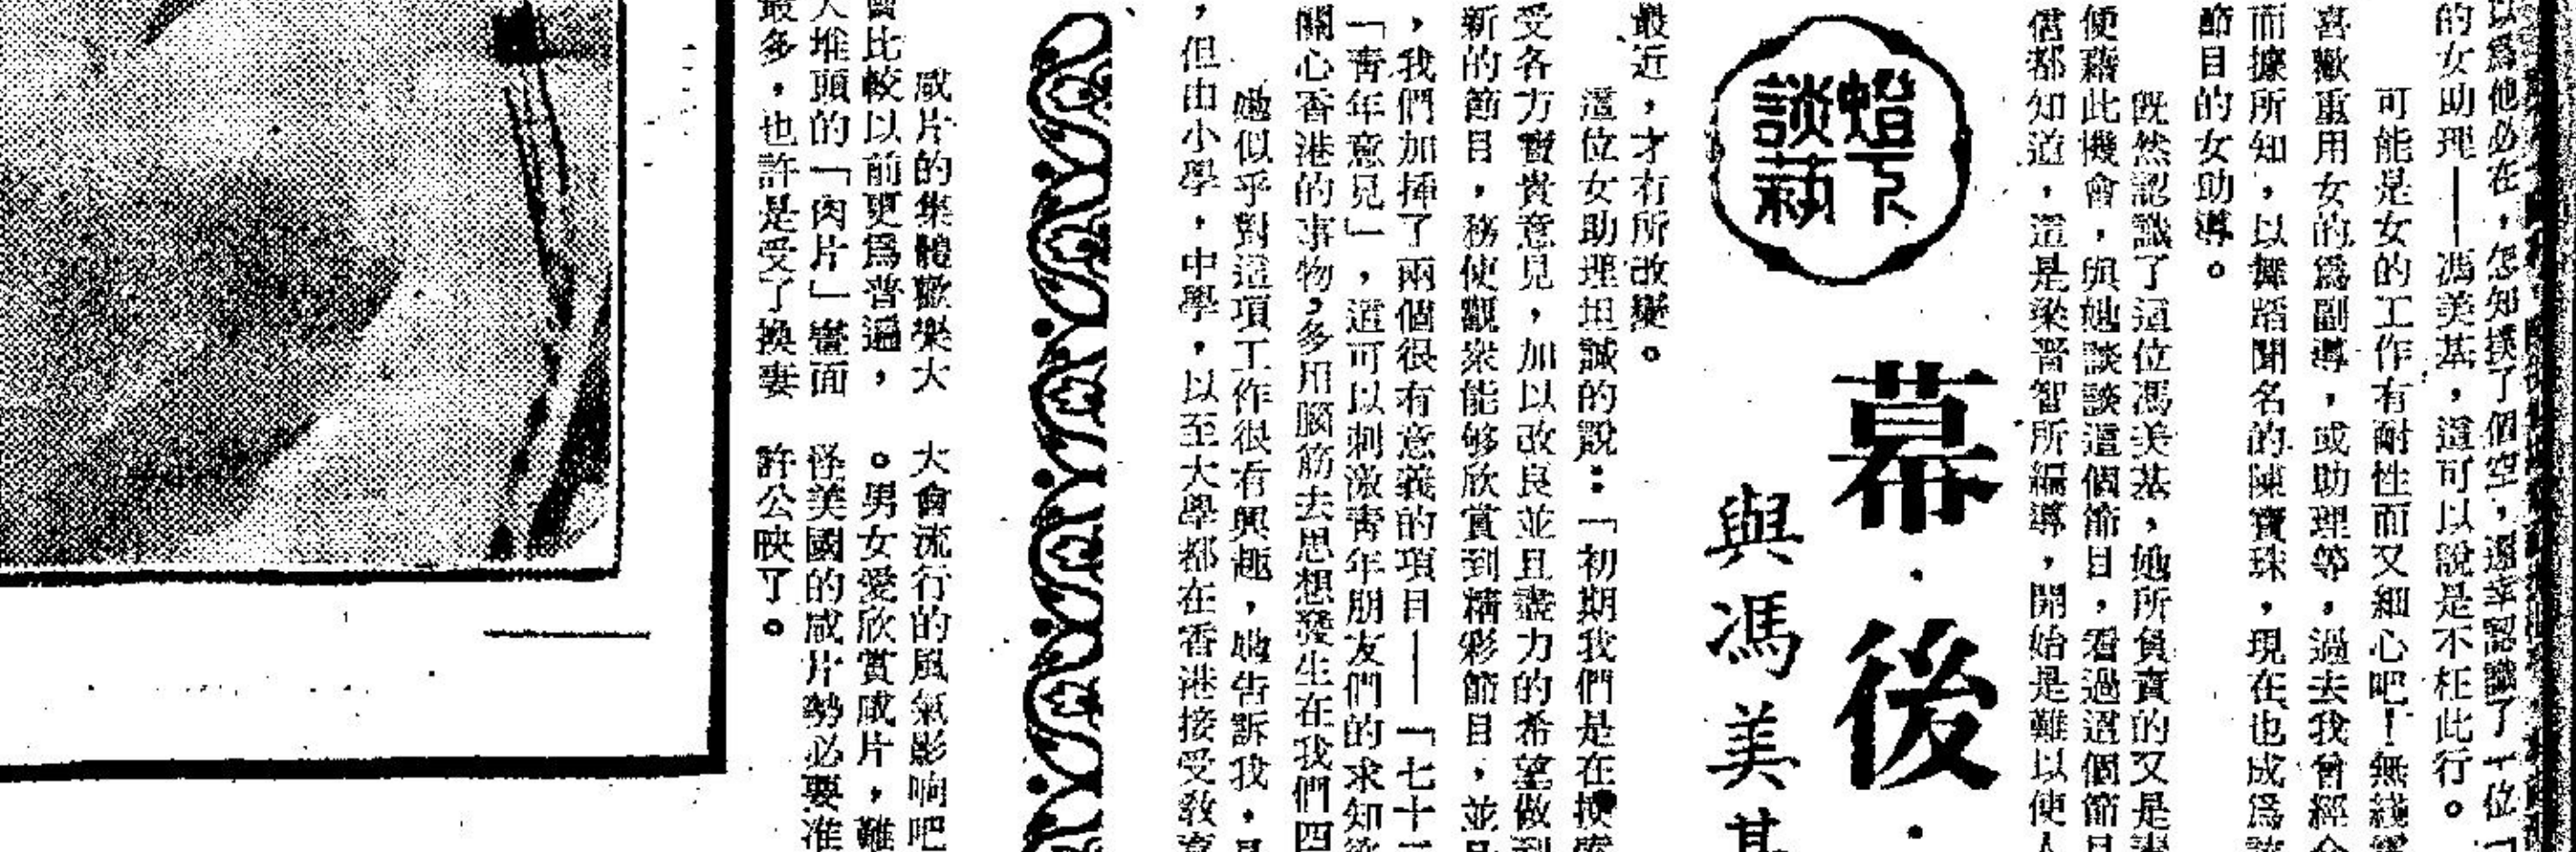 以為他必在，怎知摸了個空，還幸認識了一位「
的女助理——馮美基，這可以說是不枉此行。
可能是女的工作有耐性而又細心吧！無綫電
喜歡重用女的爲副導，或助理等，過去我曾經介
而據所知，以舞蹈聞名的陳寶珠，現在也成爲該
節目的女助導。
既然認識了這位馮美基，她所負責的又是
便藉此機會，與她談談這個節目，看過這個節目
信都知道，這是梁晋智所編導，開始是難以使人
燈下
談藝
幕·後·
與馮美基
最近，才有所改變。
這位女助理坦誠的說：「初期我們是在摸索
受各方寶貴意見，加以改良並且盡力的希望做到
新的節目，務使觀衆能够欣賞到精彩節目，並且
，我們加揷了兩個很有意義的項目——「七十二
「靑年意見」，這可以刺激靑年朋友們的求知欲
關心香港的事物，多用腦筋去思想發生在我們四
她似乎對這項工作很有興趣，她告訴我，是
，但由小學，中學，以至大學都在香港接受教育
咸片的集體歡樂大
會比較以前更爲普遍，
大堆頭的「肉片」疊面
最多，也許是受了換妻
大會流行的風氣影响吧
。男女愛欣賞咸片，難
怪美國的咸片勢必要准
許公映了。